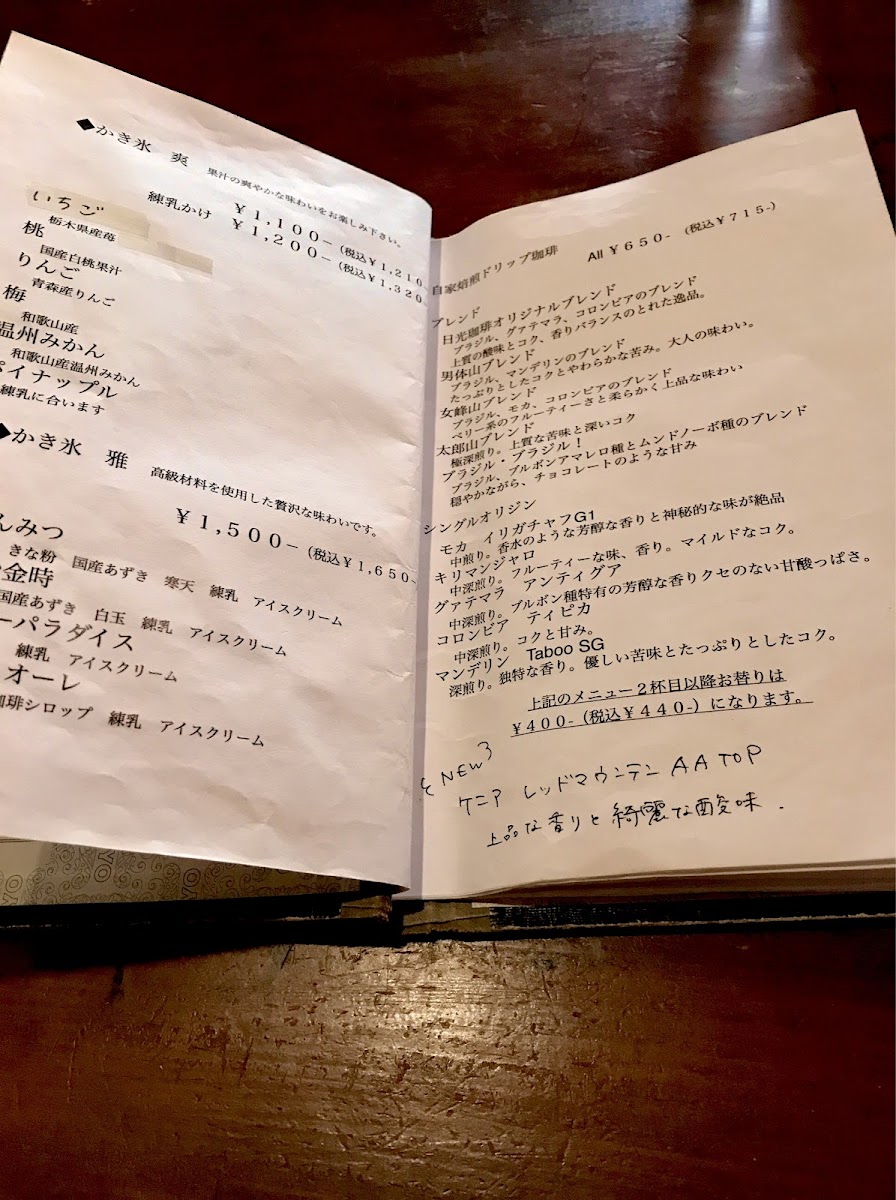 ◆かき氷 爽 果汁の爽やかな味わいをお楽しみ下さい。
¥1,100-(税込¥1,210-
練乳かけ ¥1,200-(税込¥1,320-
いちご
栃木県産苺
桃
国産白桃果汁
りんご
青森産りんご
梅
和歌山産
温州みかん
和歌山産温州みかん
パイナップル
練乳に合います
◆かき氷 雅 高級材料を使用した贅沢な味わいです。
¥1,500-(税込¥1,650-
んみつ
きな粉 国産あずき 寒天 練乳 アイスクリーム
金時
国産あずき 白玉 練乳 アイスクリーム
ーパラダイス
練乳 アイスクリーム
オーレ
珈琲シロップ 練乳 アイスクリーム
自家焙煎ドリップ珈琲 All ¥650- (税込¥715-)
ブレンド
日光珈琲オリジナルブレンド
ブラジル、グァテマラ、コロンビアのブレンド
上質の酸味とコク、香りバランスのとれた逸品。
男体山ブレンド
ブラジル、マンデリンのブレンド
たっぷりとしたコクとやわらかな苦み。大人の味わい。
女峰山ブレンド
ブラジル、モカ、コロンビアのブレンド
ベリー系のフルーティーさと柔らかく上品な味わい
太郎山ブレンド
極深煎り。上質な苦味と深いコク
ブラジル・ブラジル!
ブラジル、ブルボンアマレロ種とムンドノーボ種のブレンド
穏やかながら、チョコレートのような甘み
シングルオリジン
モカ イリガチャフG1
中煎り。香水のような芳醇な香りと神秘的な味が絶品
キリマンジャロ
中深煎り。フルーティーな味、香り。マイルドなコク。
グァテマラ アンティグア
中深煎り。ブルボン種特有の芳醇な香りクセのない甘酸っぱさ。
コロンビア ティピカ
中深煎り。コクと甘み。
マンデリン Taboo SG
深煎り。独特な香り。優しい苦味とたっぷりとしたコク。
上記のメニュー2杯目以降お替りは
¥400-(税込¥440-)になります。
NEW
ケニア レッドマウンテン AA TOP
上品な香りと綺麗な酸味.